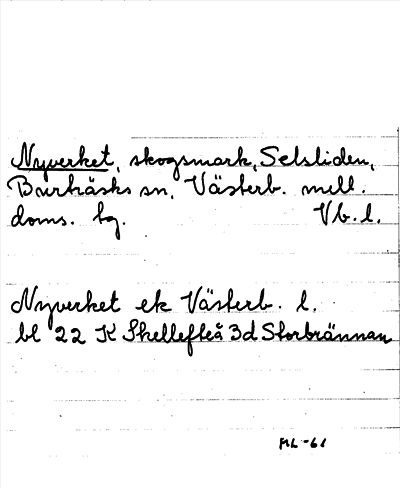 Nyverket, skogsmark, Selsliden,
Burträsks sn, Västerb. mell.
doms. hg. Vb. l.
Nyverket ek Västerb. l.
bl 22 K Skellefteå 3d Storbrännan
ML -61